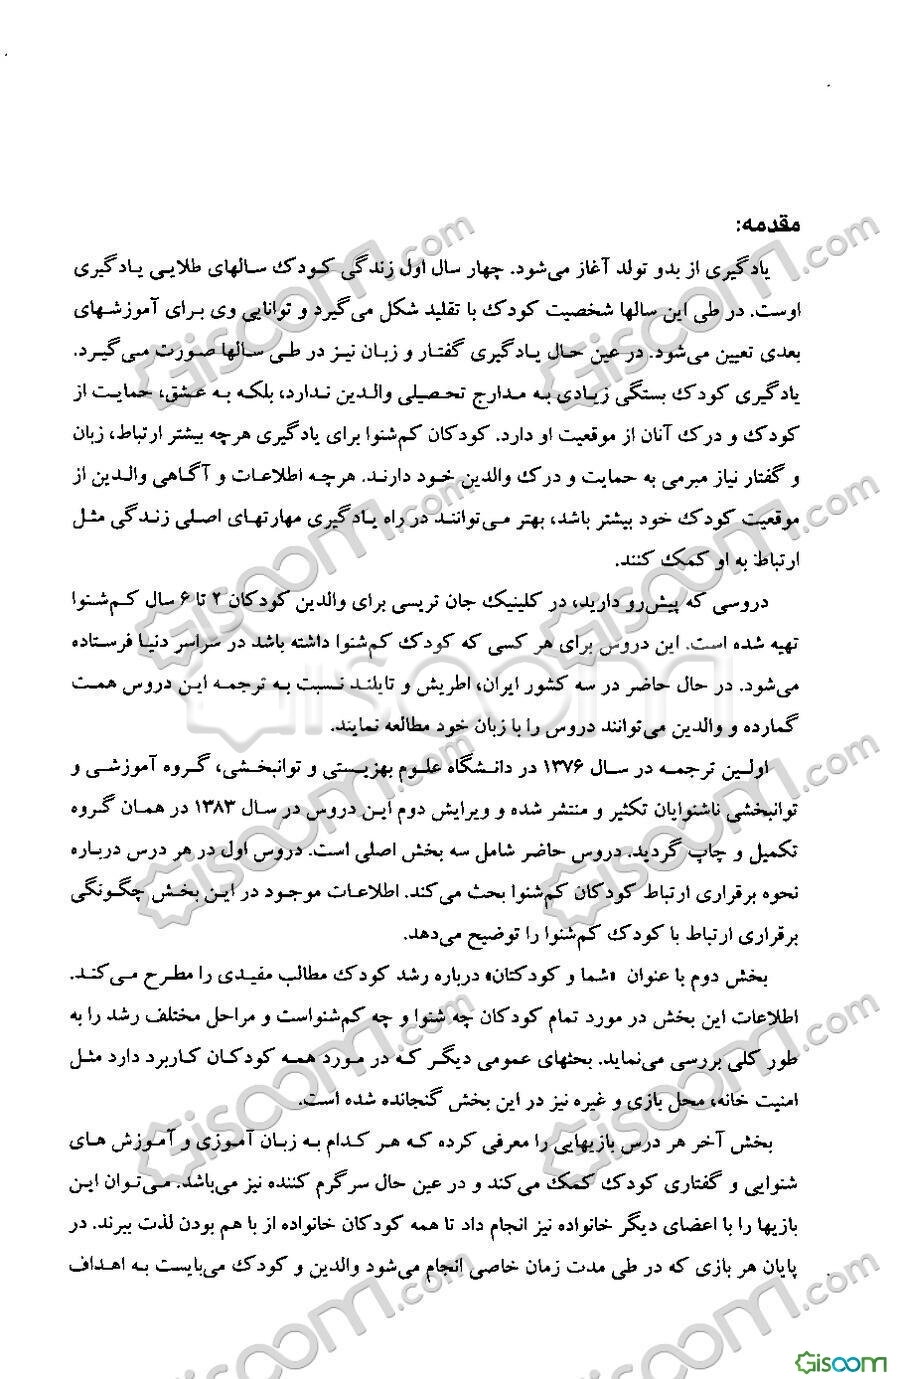 مقدمه:
یادگیری از بدو تولد آغاز می‌شود. چهار سال اول زندگی کودک سالهای طلایی یادگیری
اوست. در طی این سالها شخصیت کودک با تقلید شکل می‌گیرد و توانایی وی برای آموزشهای
بعدی تعیین می‌شود. در عین حال یادگیری گفتار و زبان نیز در طی سالها صورت می‌گیرد.
یادگیری کودک بستگی زیادی به مدارج تحصیلی والدین ندارد، بلکه به عشق، حمایت از
کودک و درک آنان از موقعیت او دارد. کودکان کم‌شنوا برای یادگیری هرچه بیشتر ارتباط، زبان
و گفتار نیاز مبرمی به حمایت و درک والدین خود دارند. هرچه اطلاعات و آگاهی والدین از
موقعیت کودک خود بیشتر باشد، بهتر می‌توانند در راه یادگیری مهارتهای اصلی زندگی مثل
ارتباط به او کمک کنند.
دروسی که پیش‌رو دارید، در کلینیک جان تریسی برای والدین کودکان ۲ تا ۶ سال کم‌شنوا
تهیه شده است. این دروس برای هر کسی که کودک کم‌شنوا داشته باشد در سراسر دنیا فرستاده
می‌شود. در حال حاضر در سه کشور ایران، اطریش و تایلند نسبت به ترجمه این دروس همت
گمارده و والدین می‌توانند دروس را با زبان خود مطالعه نمایند.
اولین ترجمه در سال ۱۳۷۶ در دانشگاه علوم بهزیستی و توانبخشی، گروه آموزشی و
توانبخشی ناشنوایان تکثیر و منتشر شده و ویرایش دوم این دروس در سال ۱۳۸۳ در همان گروه
تکمیل و چاپ گردید. دروس حاضر شامل سه بخش اصلی است. دروس اول در هر درس درباره
نحوه برقراری ارتباط کودکان کم‌شنوا بحث می‌کند. اطلاعات موجود در این بخش چگونگی
برقراری ارتباط با کودک کم‌شنوا را توضیح می‌دهد.
بخش دوم با عنوان «شما و کودکتان» درباره رشد کودک مطالب مفیدی را مطرح می‌کند.
اطلاعات این بخش در مورد تمام کودکان چه شنوا و چه کم‌شنواست و مراحل مختلف رشد را به
طور کلی بررسی می‌نماید. بحثهای عمومی دیگر که در مورد همه کودکان کاربرد دارد مثل
امنیت خانه، محل بازی و غیره نیز در این بخش گنجانده شده است.
بخش آخر هر درس بازیهایی را معرفی کرده که هر کدام به زبان آموزی و آموزش های
شنوایی و گفتاری کودک کمک می‌کند و در عین حال سرگرم کننده نیز می‌باشد. می‌توان این
بازیها را با اعضای دیگر خانواده نیز انجام داد تا همه کودکان خانواده از با هم بودن لذت ببرند. در
پایان هر بازی که در طی مدت زمان خاصی انجام می‌شود والدین و کودک می‌بایست به اهداف
Giscom